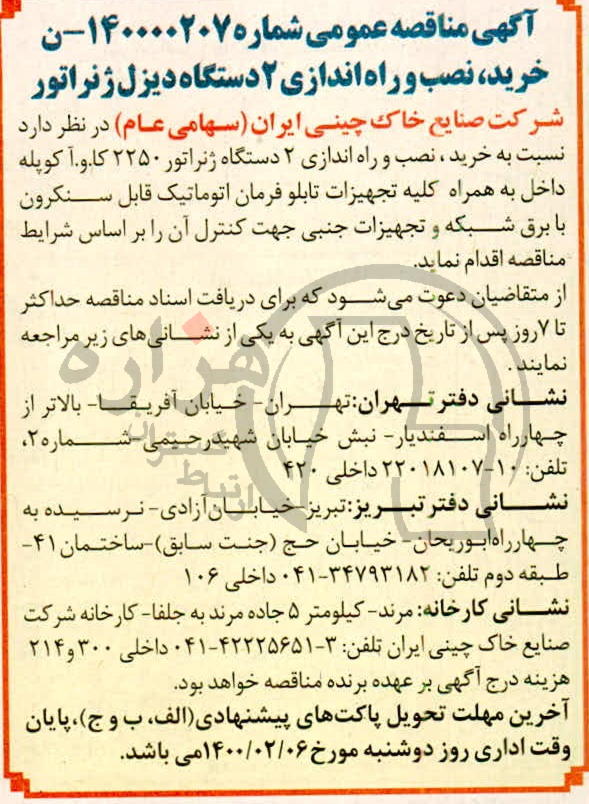 آگهی مناقصه عمومی شماره ۱۴۰۰۰۰۲۰۷-ن
خرید، نصب و راه اندازی ۲ دستگاه دیزل ژنراتور
شرکت صنایع خاک چینی ایران (سهامی عام) در نظر دارد
نسبت به خرید ، نصب و راه اندازی ۲ دستگاه ژنراتور ۲۲۵۰ کا.و.آ کوپله
داخل به همراه کلیه تجهیزات تابلو فرمان اتوماتیک قابل سنکرون
با برق شبکه و تجهیزات جنبی جهت کنترل آن را بر اساس شرایط
مناقصه اقدام نماید.
از متقاضیان دعوت می‌شود که برای دریافت اسناد مناقصه حداکثر
تا ۷ روز پس از تاریخ درج این آگهی به یکی از نشانی‌های زیر مراجعه
نمایند .
نشانی دفتر تهران: تهران- خیابان آفریقا- بالاتر از
چهارراه اسفندیار- نبش خیابان شهید رحیمی-شماره ۲،
تلفن: ۱۰-۲۲۰۱۸۱۰۷ داخلی ۴۲۰
نشانی دفتر تبریز: تبریز-خیابان آزادی- نرسیده به
چهارراه ابوریحان- خیابان حج (جنت سابق)-ساختمان ۴۱-
طبقه دوم تلفن: ۳۴۷۹۳۱۸۲-۰۴۱ داخلی ۱۰۶
نشانی کارخانه: مرند- کیلومتر ۵ جاده مرند به جلفا- کارخانه شرکت
صنایع خاک چینی ایران تلفن: ۳-۴۲۲۲۵۶۵۱-۰۴۱ داخلی ۳۰۰ و ۲۱۴
هزینه درج آگهی بر عهده برنده مناقصه خواهد بود.
آخرین مهلت تحویل پاکت‌های پیشنهادی(الف، ب و ج)، پایان
وقت اداری روز دوشنبه مورخ ۱۴۰۰/۰۲/۰۶ می باشد.
هزاره
گستران
ارتباط